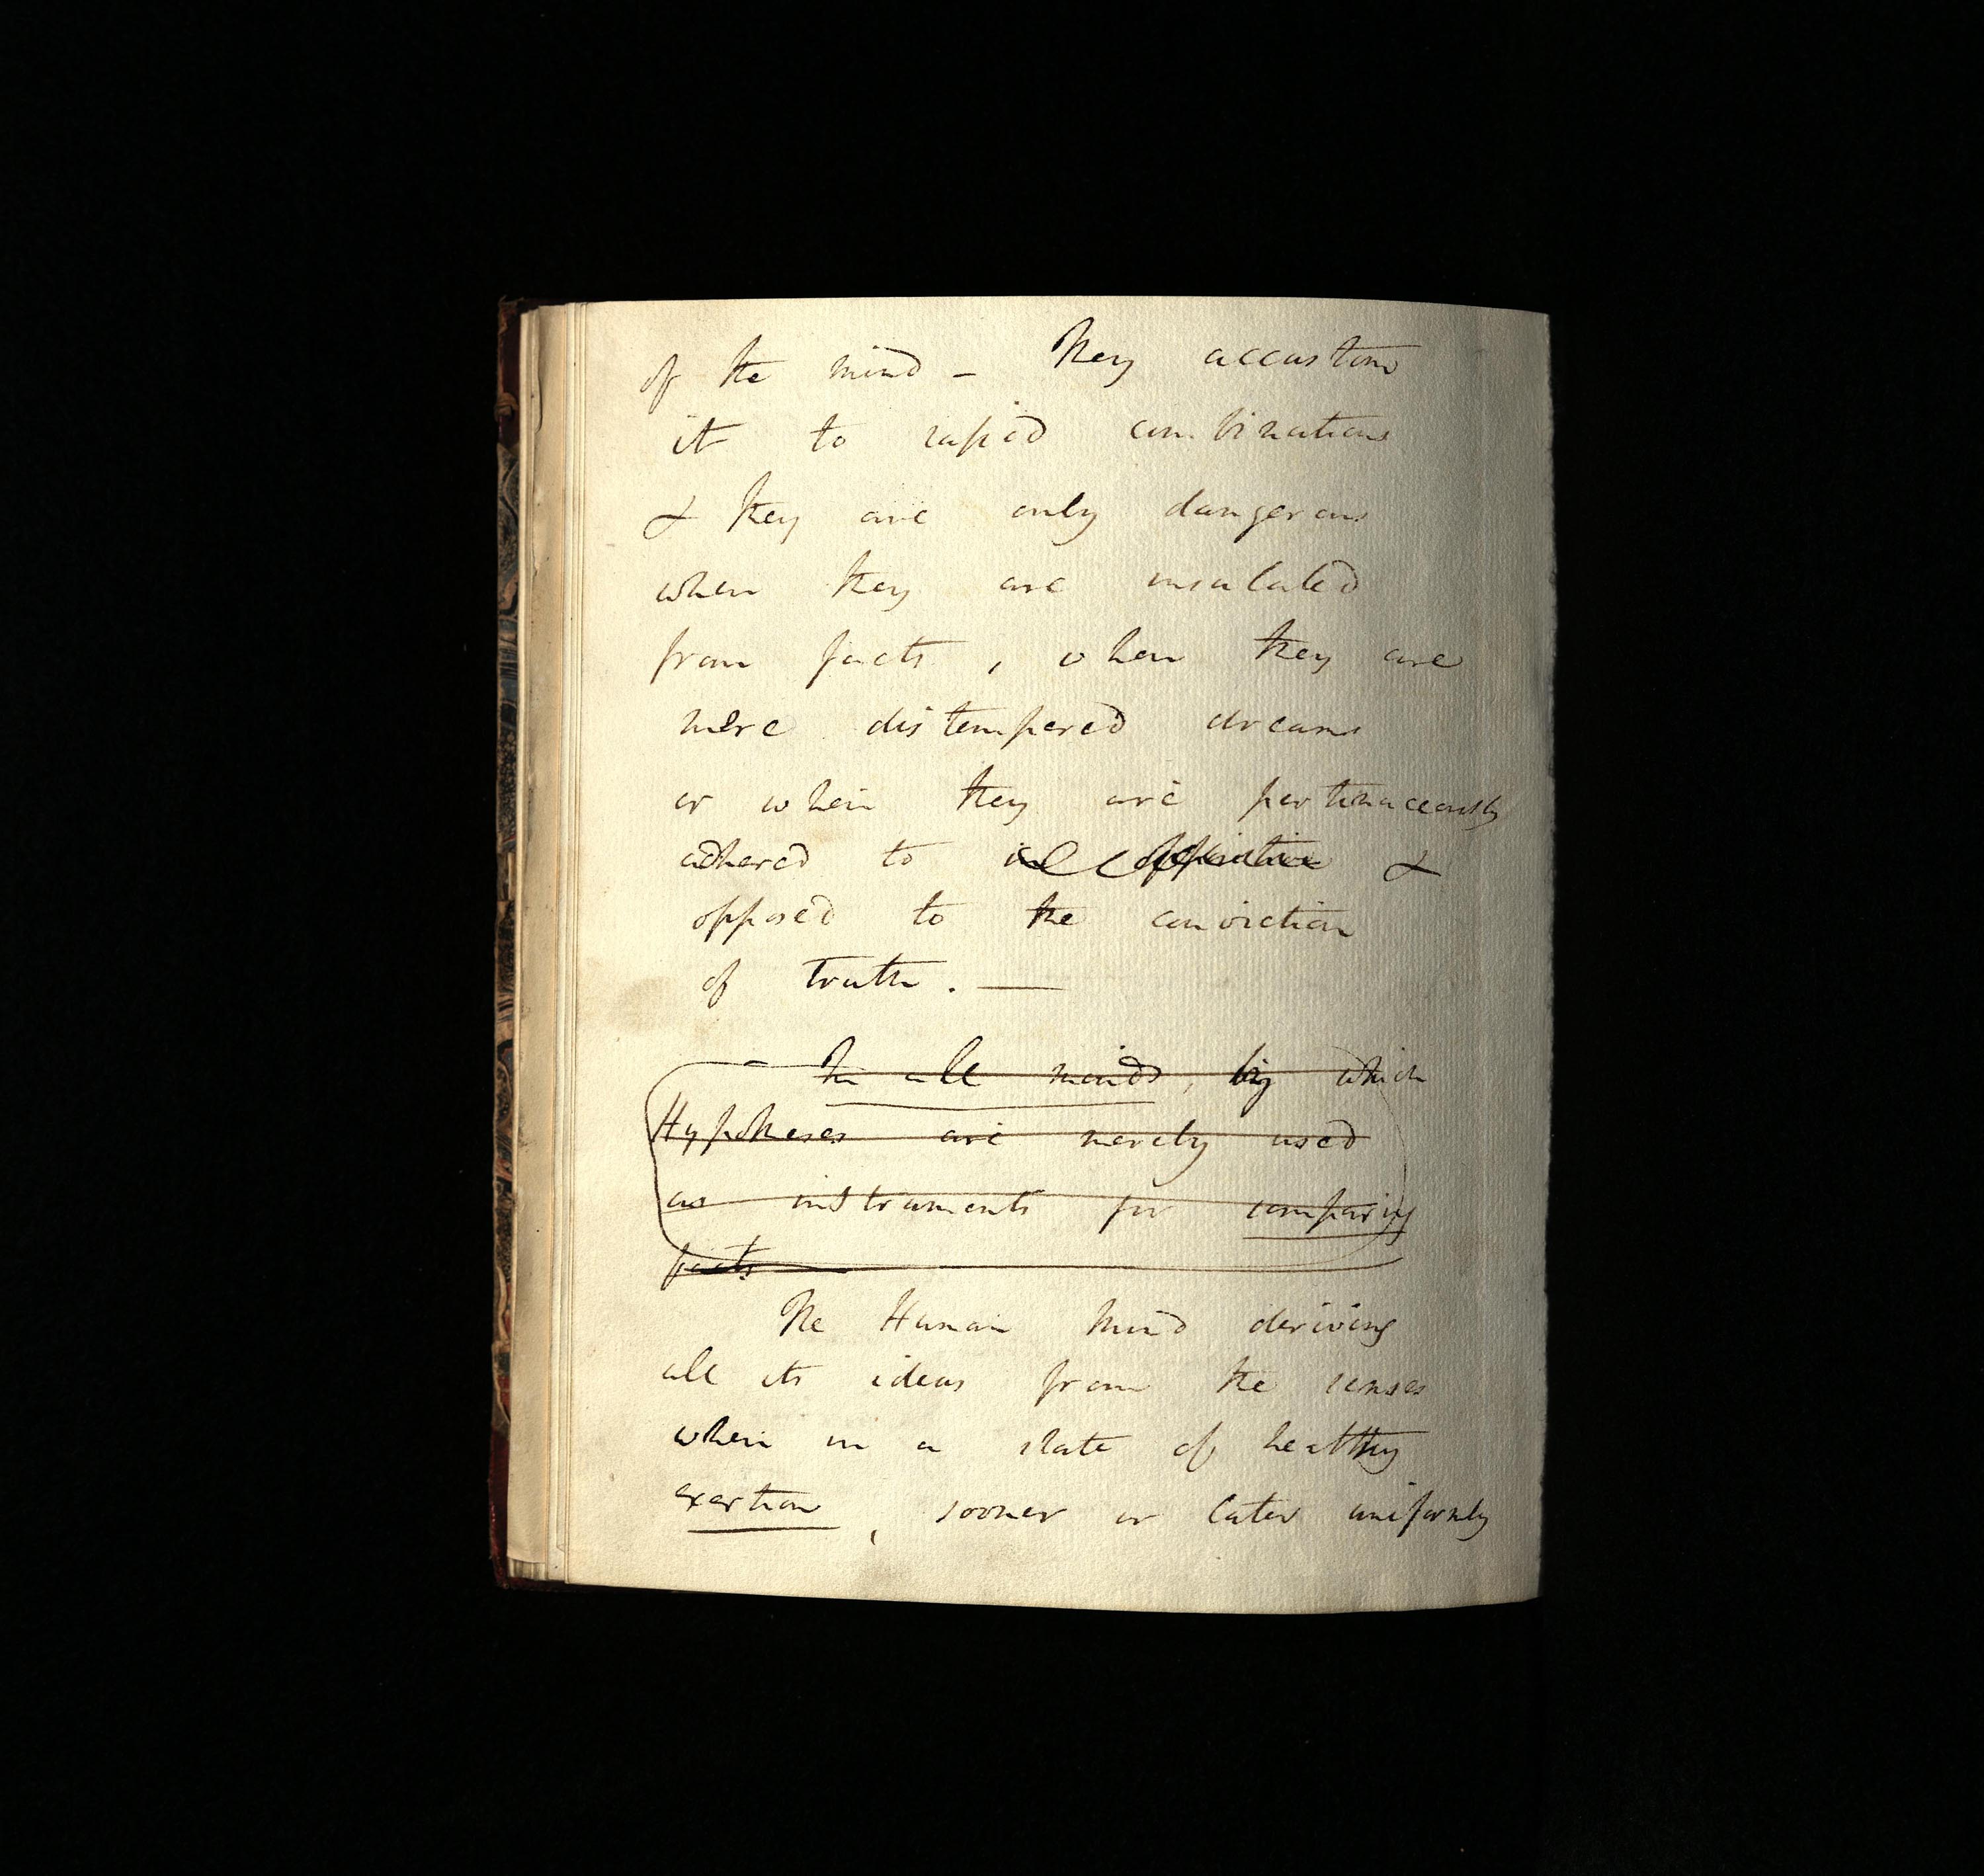 of the mind – They accustom
it to rapid combinations
& they are only dangerous
when they are insulated
from facts , when they are
mere distempered dreams
or when they are pertinaceously
adhered to &
opposed to the conviction
of truth . —
In all minds , by which
Hypotheses are merely used
as instruments for comparing
facts
The Human Mind deriving
all its ideas from the senses
when in a state of healthy
exertion , sooner or later uniformly